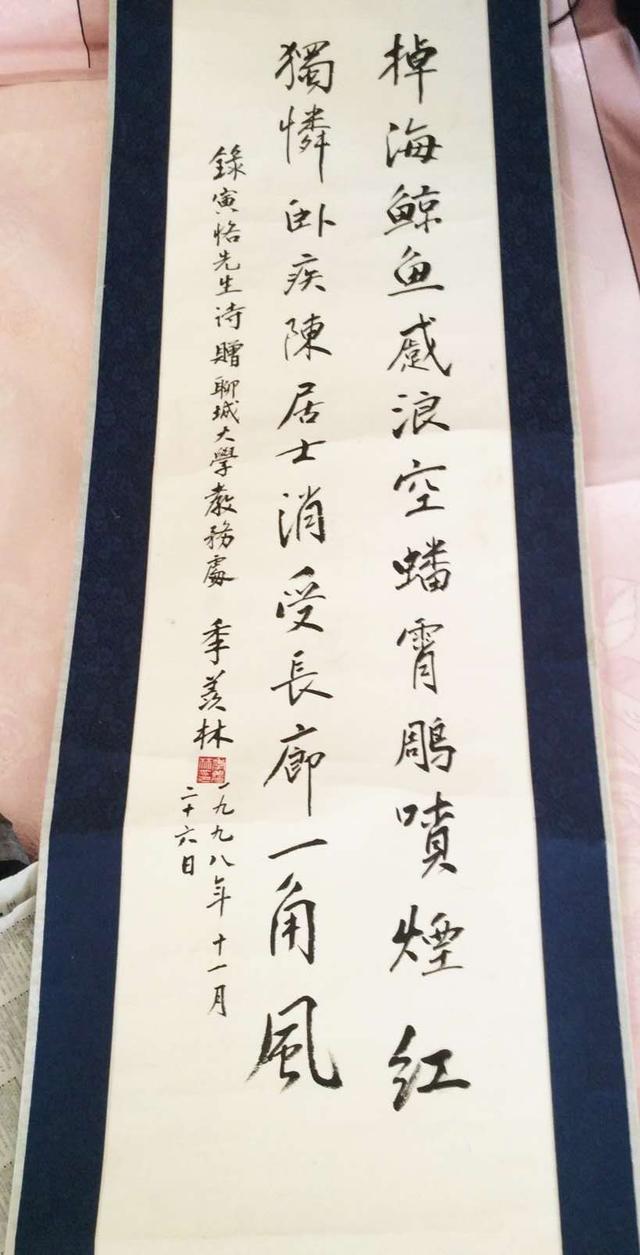 掉海鲸鱼蹙浪空蟠霄鵰噴煙红
獨憐卧疾陳居士消受長廊一角風
錄寅恪先生诗贈聊城大學教務處 季羡林
一九九八年十一月
二十六日